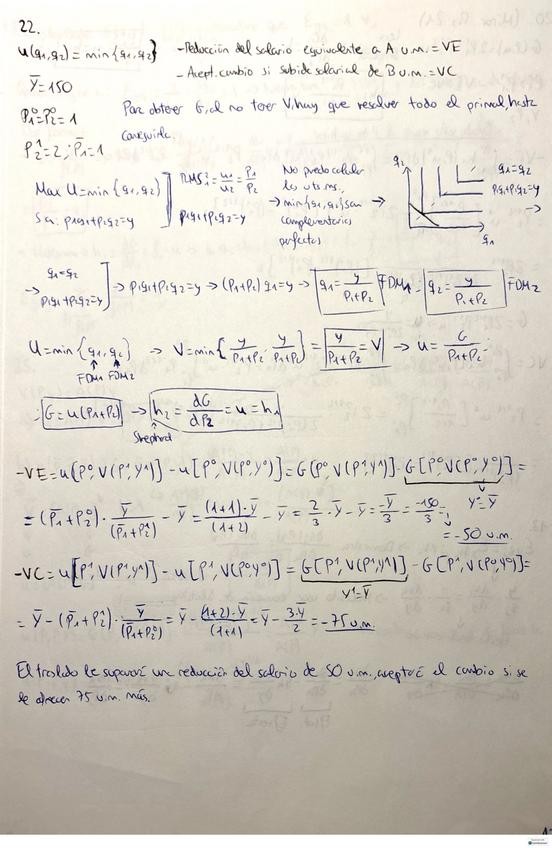 22.
u(q₁,q₂) = min{q₁,q₂} - Reducción del salario equivalente a A u.m. = VE
- Acept. cambio si subida salarial de B u.m. = VC
Ȳ = 150
P₁⁰ = P₂⁰ = 1 Para obtener G, al no tener V, hay que resolver todo el primal hasta
conseguirla.
P₂¹ = 2 ; P̄₁ = 1
Max U = min{q₁,q₂}
s.a: p₁q₁ + p₂q₂ = y
RMS₁² = u₁/u₂ = P₁/P₂
p₁q₁ + p₂q₂ = y
No puedo calcular
las uts ms,
→ min{q₁,q₂} son →
complementarios
perfectos
q₂
q₁ = q₂
p₁q₁ + p₂q₂ = y
→
q₁
→ q₁ = q₂
p₁q₁ + p₂q₂ = y → p₁q₁ + p₂q₁ = y → (P₁+P₂) q₁ = y → q₁ = y/(P₁+P₂) FDM₁ ; q₂ = y/(P₁+P₂) FDM₂
U = min{q₁,q₂} → V = min{y/(P₁+P₂), y/(P₁+P₂)} = y/(P₁+P₂) = V → u = G/(P₁+P₂) ;
FDM₁ FDM₂
; G = u(P₁+P₂) → h₂ = dG/dP₂ = u = h₁
Shephard
- VE = u[P⁰, V(P¹,Y¹)] - u[P⁰, V(P⁰,Y⁰)] = G[P⁰, V(P¹,Y¹)] - G[P⁰, V(P⁰,Y⁰)] =
Y⁰ = Ȳ
= (P̄₁+P₂⁰) · Ȳ/(P̄₁+P₂¹) - Ȳ = (1+1)·Ȳ/(1+2) - Ȳ = 2/3 Ȳ - Ȳ = -Ȳ/3 = -150/3 =
= -50 u.m.
- VC = u[P¹, V(P¹,Y¹)] - u[P¹, V(P⁰,Y⁰)] = G[P¹, V(P¹,Y¹)] - G[P¹, V(P⁰,Y⁰)] =
Y¹ = Ȳ
= Ȳ - (P̄₁+P₂¹) · Ȳ/(P̄₁+P₂⁰) = Ȳ - (1+2)·Ȳ/(1+1) = Ȳ - 3·Ȳ/2 = -75 u.m.
El traslado le supondrá una reducción del salario de 50 u.m., aceptará el cambio si se
le ofrecen 75 u.m. más.